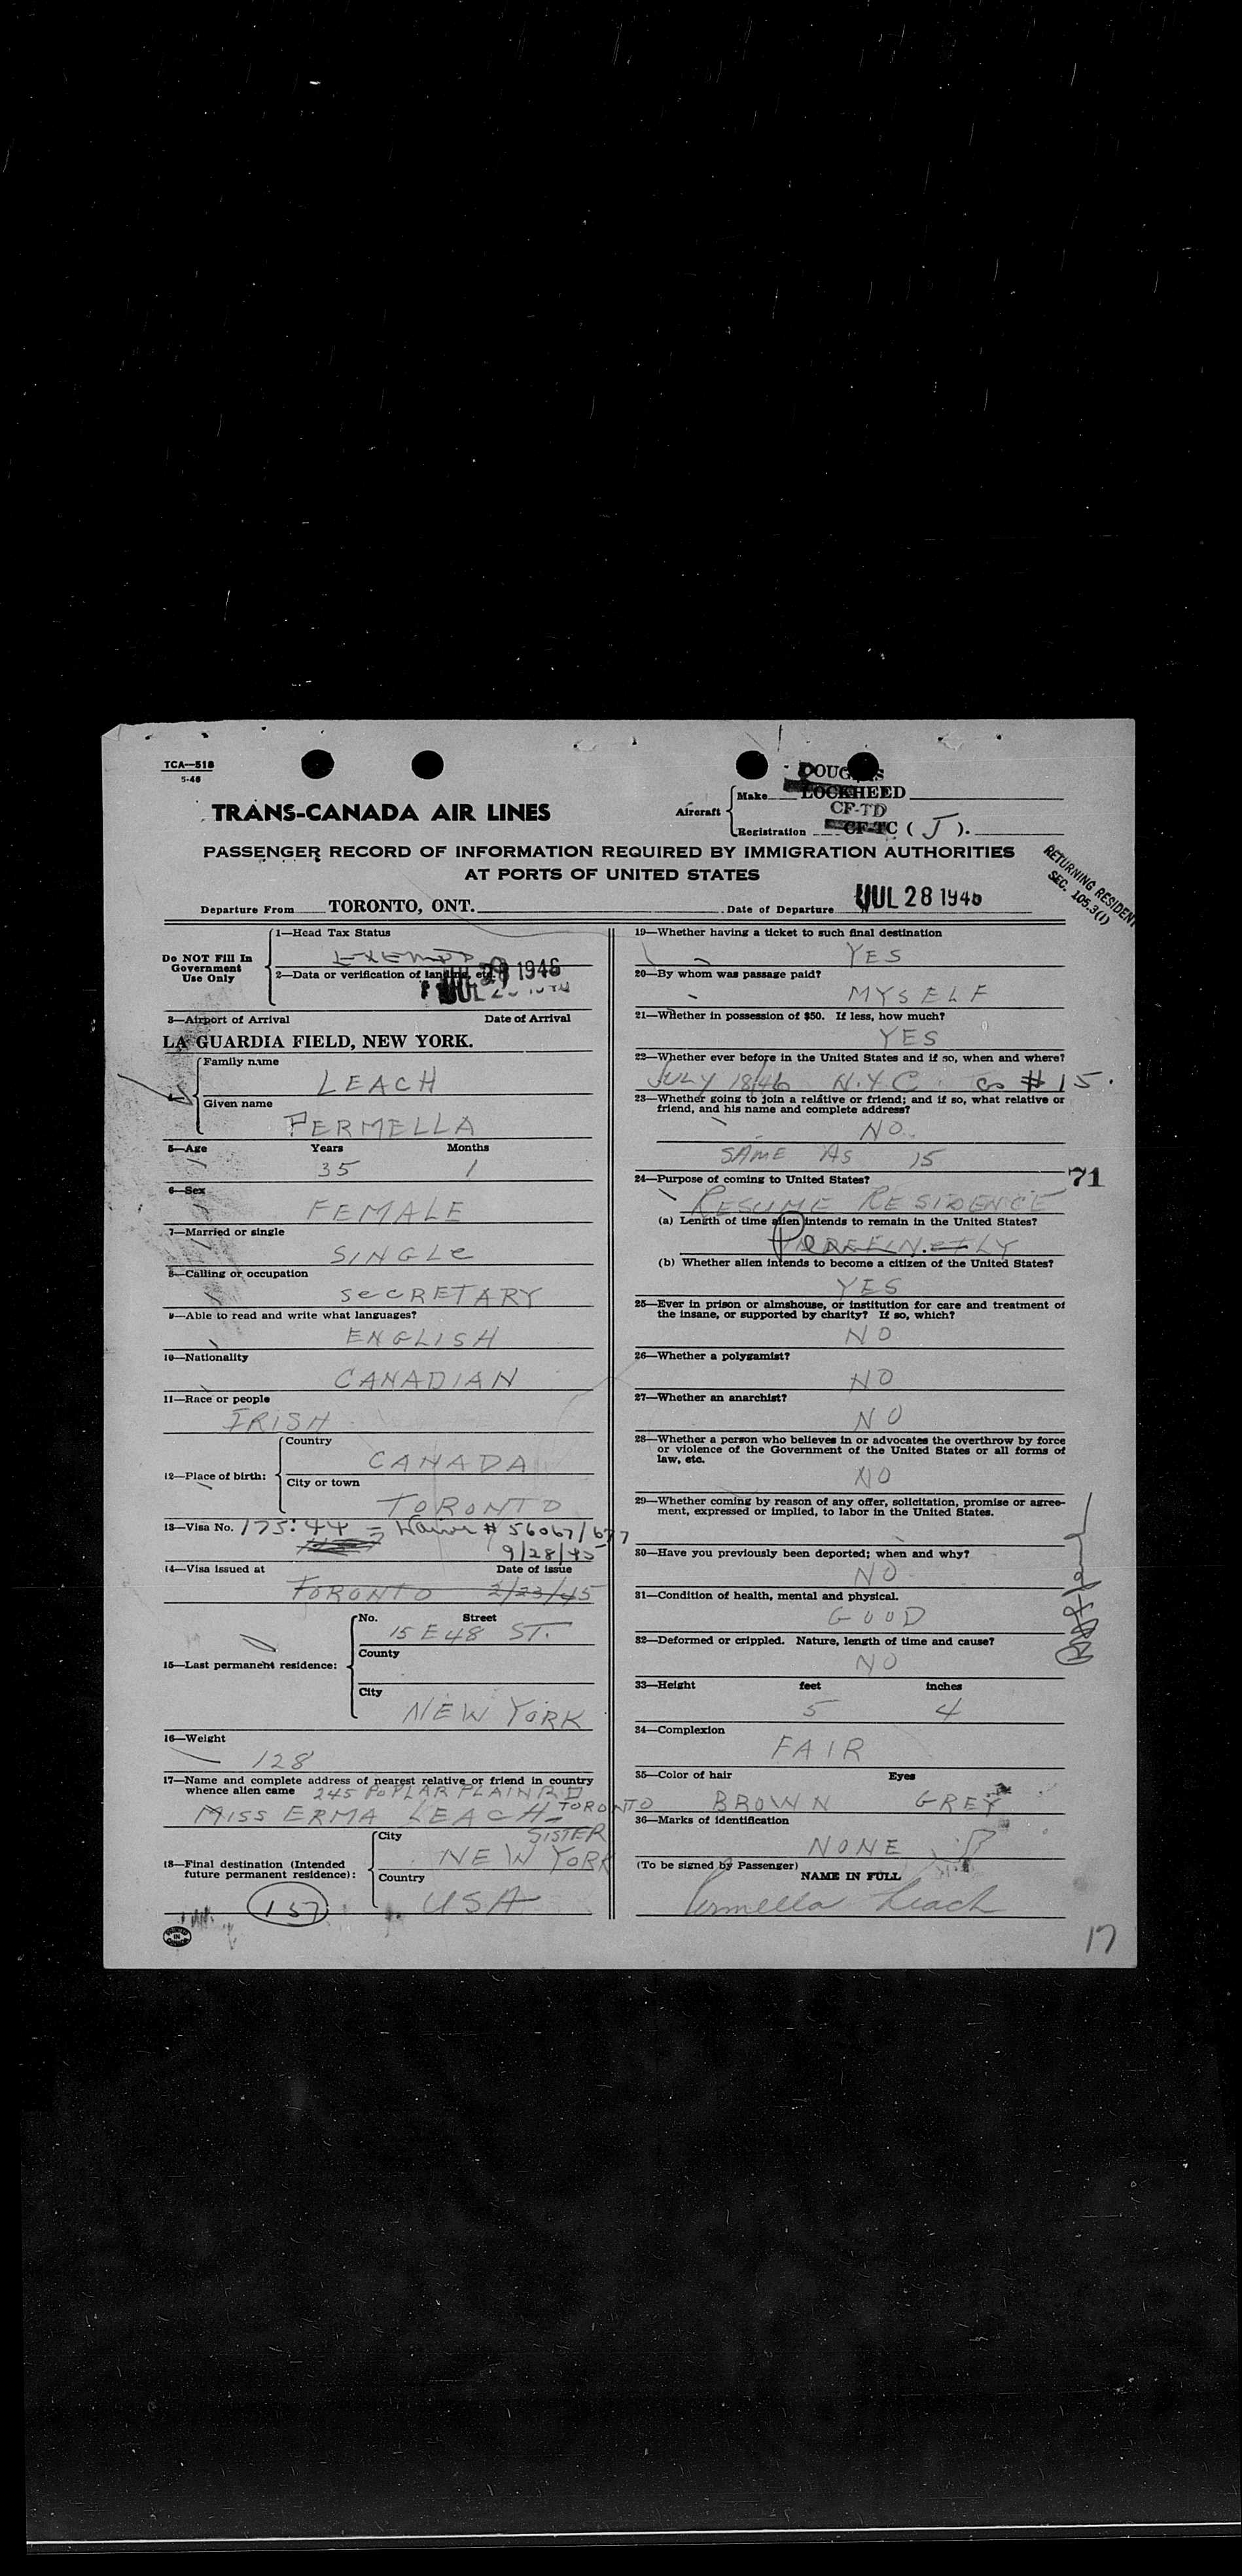 TCA—518
5-46
TRANS-CANADA AIR LINES
Aircraft
Make
DOUGLAS
LOCKHEED
CF-TD
Registration CF-TC ( J ).
PASSENGER RECORD OF INFORMATION REQUIRED BY IMMIGRATION AUTHORITIES
AT PORTS OF UNITED STATES
RETURNING RESIDENT
SEC. 105.3(1)
Departure From TORONTO, ONT. Date of Departure JUL 28 1946
Do NOT Fill In
Government
Use Only
1—Head Tax Status
EXEMPT
2—Data or verification of landing, etc.
JUL 28 1946
3—Airport of Arrival Date of Arrival
LA GUARDIA FIELD, NEW YORK.
Family name
LEACH
Given name
PERMELLA
5—Age Years Months
35 1
6—Sex
FEMALE
7—Married or single
SINGLE
8—Calling or occupation
SECRETARY
9—Able to read and write what languages?
ENGLISH
10—Nationality
CANADIAN
11—Race or people
IRISH
12—Place of birth:
Country
CANADA
City or town
TORONTO
13—Visa No. 175:44 = Waiver # 56067/677
9/28/45
14—Visa issued at Date of issue
TORONTO 2/23/45
15—Last permanent residence:
No. Street
15 E 48 ST.
County
City
NEW YORK
16—Weight
128
17—Name and complete address of nearest relative or friend in country
whence alien came 245 POPLAR PLAIN RD
MISS ERMA LEACH - TORONTO
SISTER
18—Final destination (Intended
future permanent residence):
City
NEW YORK
Country
USA
157
19—Whether having a ticket to such final destination
YES
20—By whom was passage paid?
MYSELF
21—Whether in possession of $50. If less, how much?
YES
22—Whether ever before in the United States and if so, when and where?
JULY 18/46 N.Y.C. as # 15.
23—Whether going to join a relative or friend; and if so, what relative or
friend, and his name and complete address?
NO
SAME AS 15
71
24—Purpose of coming to United States?
RESUME RESIDENCE
(a) Length of time alien intends to remain in the United States?
(b) Whether alien intends to become a citizen of the United States?
YES
25—Ever in prison or almshouse, or institution for care and treatment of
the insane, or supported by charity? If so, which?
NO
26—Whether a polygamist?
NO
27—Whether an anarchist?
NO
28—Whether a person who believes in or advocates the overthrow by force
or violence of the Government of the United States or all forms of
law, etc.
NO
29—Whether coming by reason of any offer, solicitation, promise or agree-
ment, expressed or implied, to labor in the United States.
30—Have you previously been deported; when and why?
NO
31—Condition of health, mental and physical.
GOOD
32—Deformed or crippled. Nature, length of time and cause?
NO
33—Height feet inches
5 4
34—Complexion
FAIR
35—Color of hair Eyes
BROWN GREY
36—Marks of identification
NONE
(To be signed by Passenger)
NAME IN FULL
Permella Leach
17